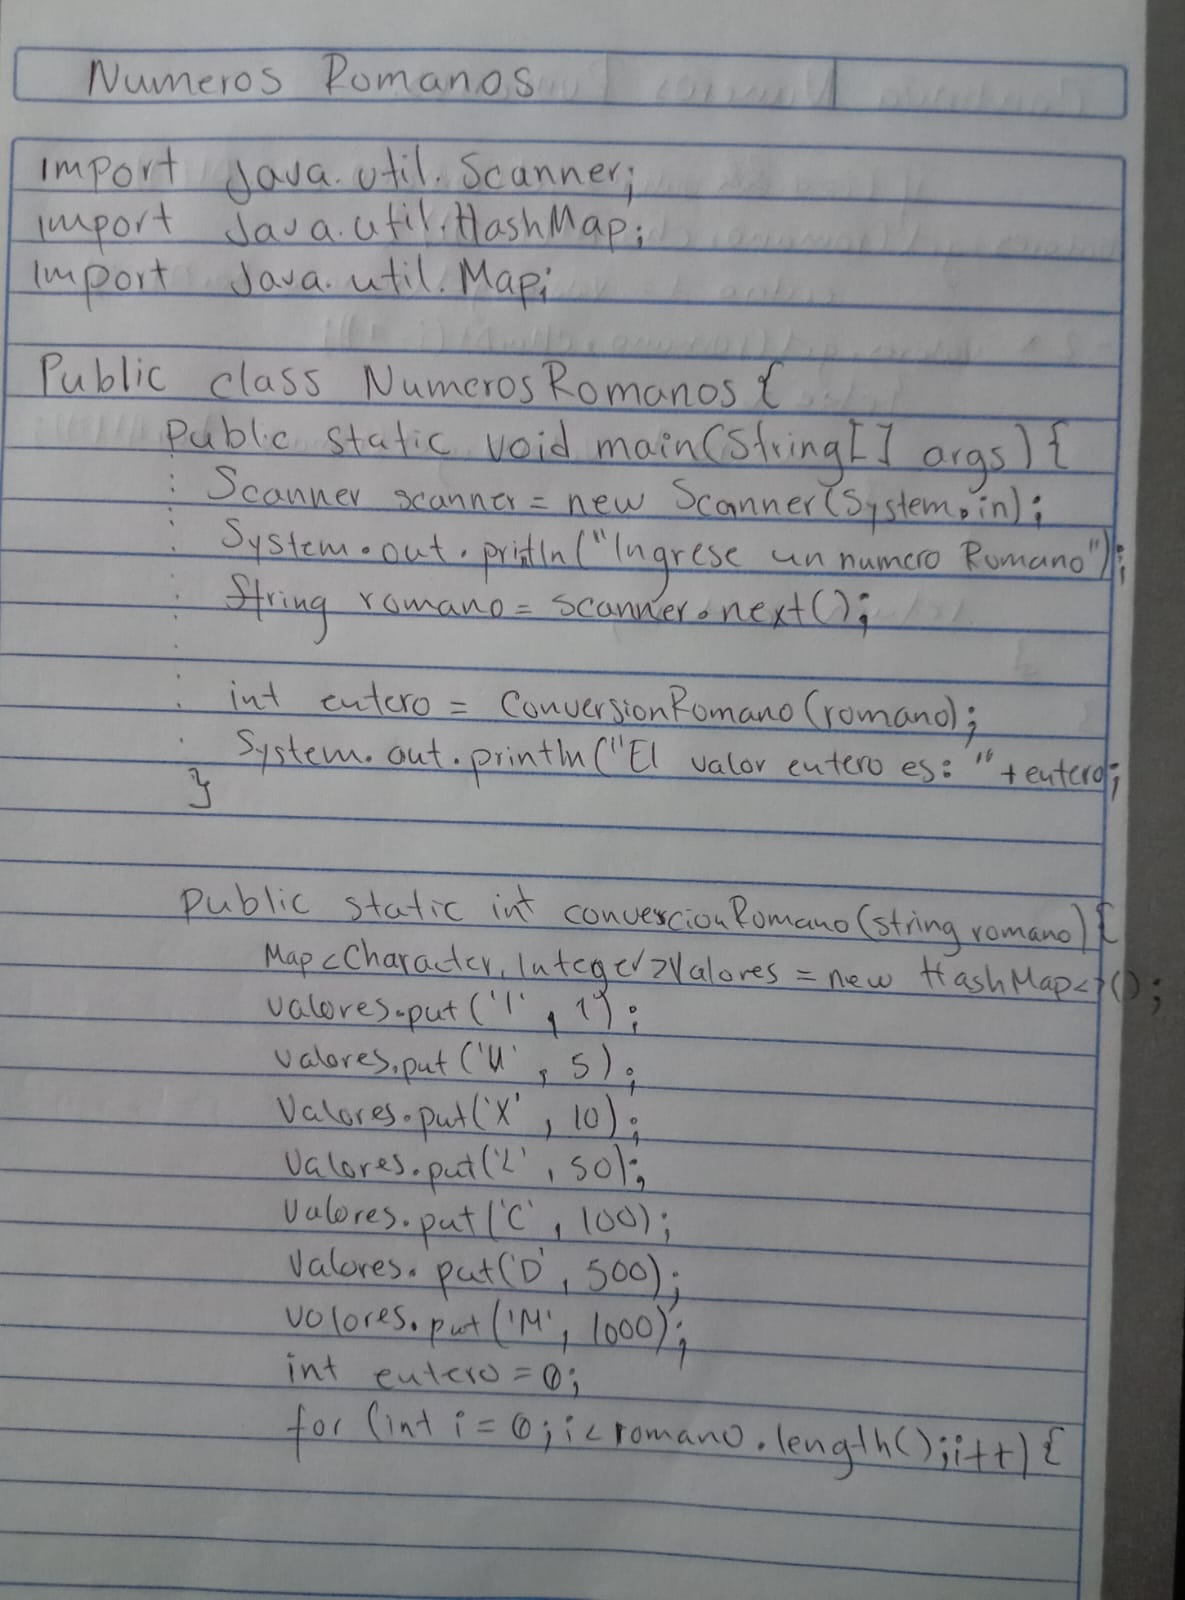 Numeros Romanos
import Java.util.Scanner;
import Java.util.HashMap;
import Java.util.Map;
Public class NumerosRomanos {
Public static void main(String[] args) {
Scanner scanner = new Scanner(System.in);
System.out.println("Ingrese un numero Romano");
String romano = scanner.next();
int entero = ConversionRomano(romano);
System.out.println("El valor entero es: " + entero;
}
Public static int convercionRomano(string romano) {
Map<Character, Integer> Valores = new HashMap<>();
valores.put('I', 1);
valores.put('V', 5);
Valores.put('X', 10);
Valores.put('L', 50);
Valores.put('C', 100);
Valores.put('D', 500);
valores.put('M', 1000);
int entero = 0;
for (int i = 0; i < romano.length(); i++) {